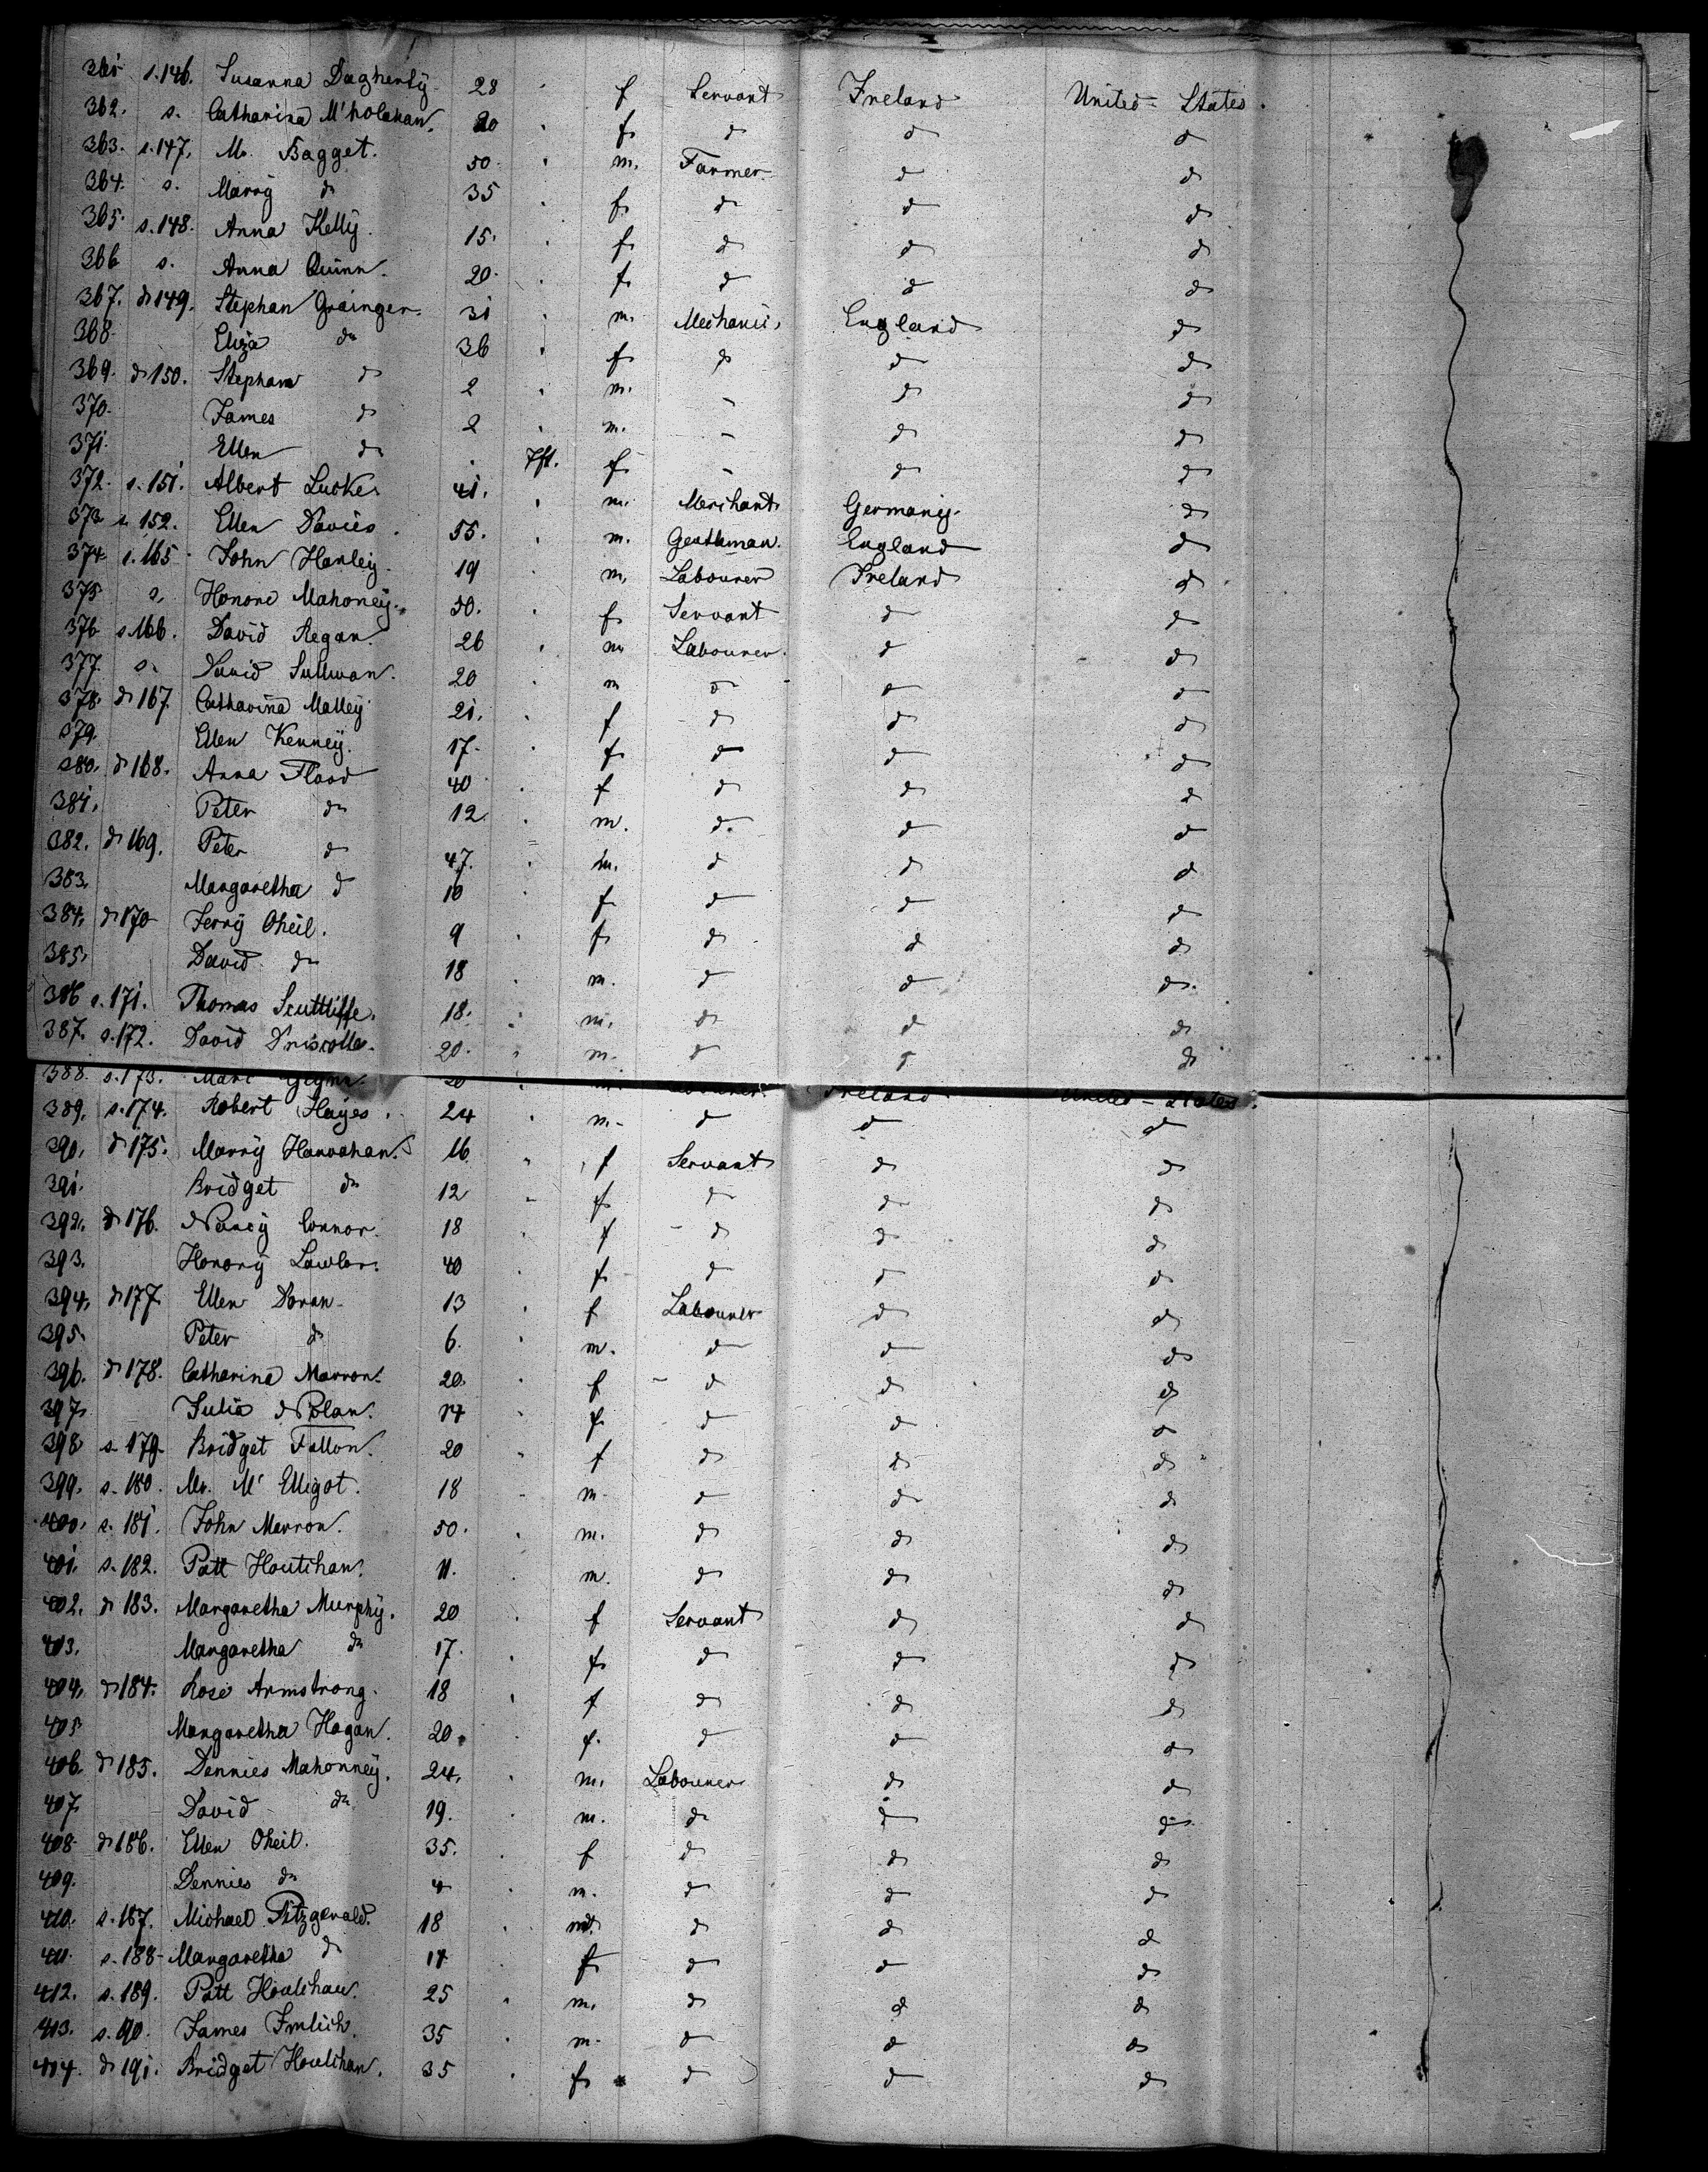 361 s.146. Susanna Dagherty 28 f Servant Ireland United States.
362. s. Catharina M'holahan. 20 f d d d
363. s.147. Mr. Bagget. 50 m. Farmer d d
364. s. Marrÿ do 35 f d d d
365. s.148. Anna Kellÿ. 15. f d d d
366 s. Anna Quinn. 20. f d d d
367. d 149. Stephan Grainger. 31 m. Mechanic England d
368. Eliza do 36 f d d d
369. d 150. Stephan d 2 m. - d d
370. James d 2 m. - d d
371. Ellen do 7/12. f - d d
372. s.151. Albert Lucke 41. m. Merchant Germanÿ. d
373 s. 152. Ellen Davies 55. m. Gentleman. England d
374. s.165 John Hanley. 19 m. Labourer Ireland d
375 s. Honore Mahoneÿ. 30. f Servant d d
376 s.166. David Regan. 26 m Labourer. d d
377. s. David Sullivan. 20 m d d d
378. d 167. Catharina Malleÿ 21. f d d d
379. Ellen Kenneÿ. 17. f d d d
380. d 168. Anna Flood 40 f d d d
381. Peter do 12. m. d. d d
382. d 169. Peter d 47. m. d d d
383. Margaretha d 10 f d d d
384. d 170 Jerrÿ Oheil. 9 f d d d
385. David do 18 m. d d d.
386 s.171. Thomas Scuttliffe. 18. m. d d d
387. s.172. David Driscolle. 20. m. d d d
388. s.173. 20 Ireland United States.
389. s.174. Robert Hayes. 24 m. d d d
390. d 175. Marrÿ Hanrahan. 16. f Servant d d
391. Bridget do 12 f d d d
392. d 176. Nancÿ Connor. 18 f d d d
393. Honorÿ Lawler. 40 f d d d
394. d 177. Ellen Doran 13 f Labourer d d
395. Peter d 6. m. d d d
396. d 178. Catharina Marron. 20. f d d d
397. Julia Nolan. 17 f d d d
398 s. 179. Bridget Fallon. 20 f d d d
399. s. 180. Mr. M' Elligot. 18 m d d d
400. s. 181. John Merron. 50. m. d d d
401. s. 182. Patt Houlihan. 11. m. d d d
402. d 183. Margaretha Murphÿ. 20 f Servant d d
403. Margaretha do 17. f d d d
404. d 184. Rose Armstrong. 18 f d d d
405 Margaretha Hogan. 20. f. d d d
406. d 185. Dennies Mahonneÿ. 24. m. Labourer d d
407. David do 19. m. d d d
408. d 186. Ellen Oheil. 35. f d d d
409. Dennies do 4 m. d d d
410. s.187. Michael Fitzgerald. 18 m. d d d
411. s.188 Margaretha d 17 f d d d
412. s.189. Patt Houlihan. 25 m. d d d
413. s.190. James 35 m. d d d
414. d 191. Bridget Houlihan. 35 f d d d